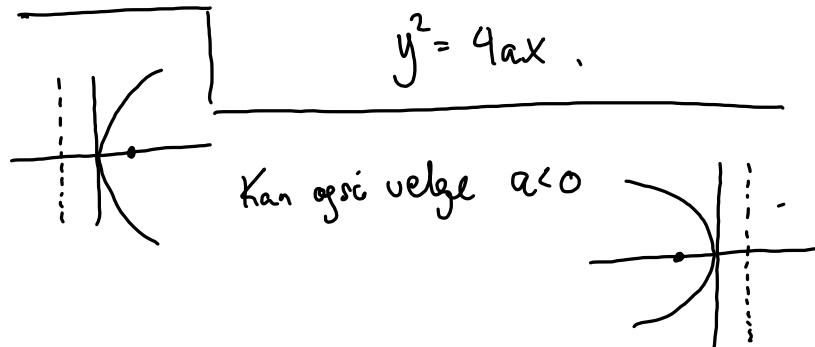 y² = 4ax.
Kan også velge a<0